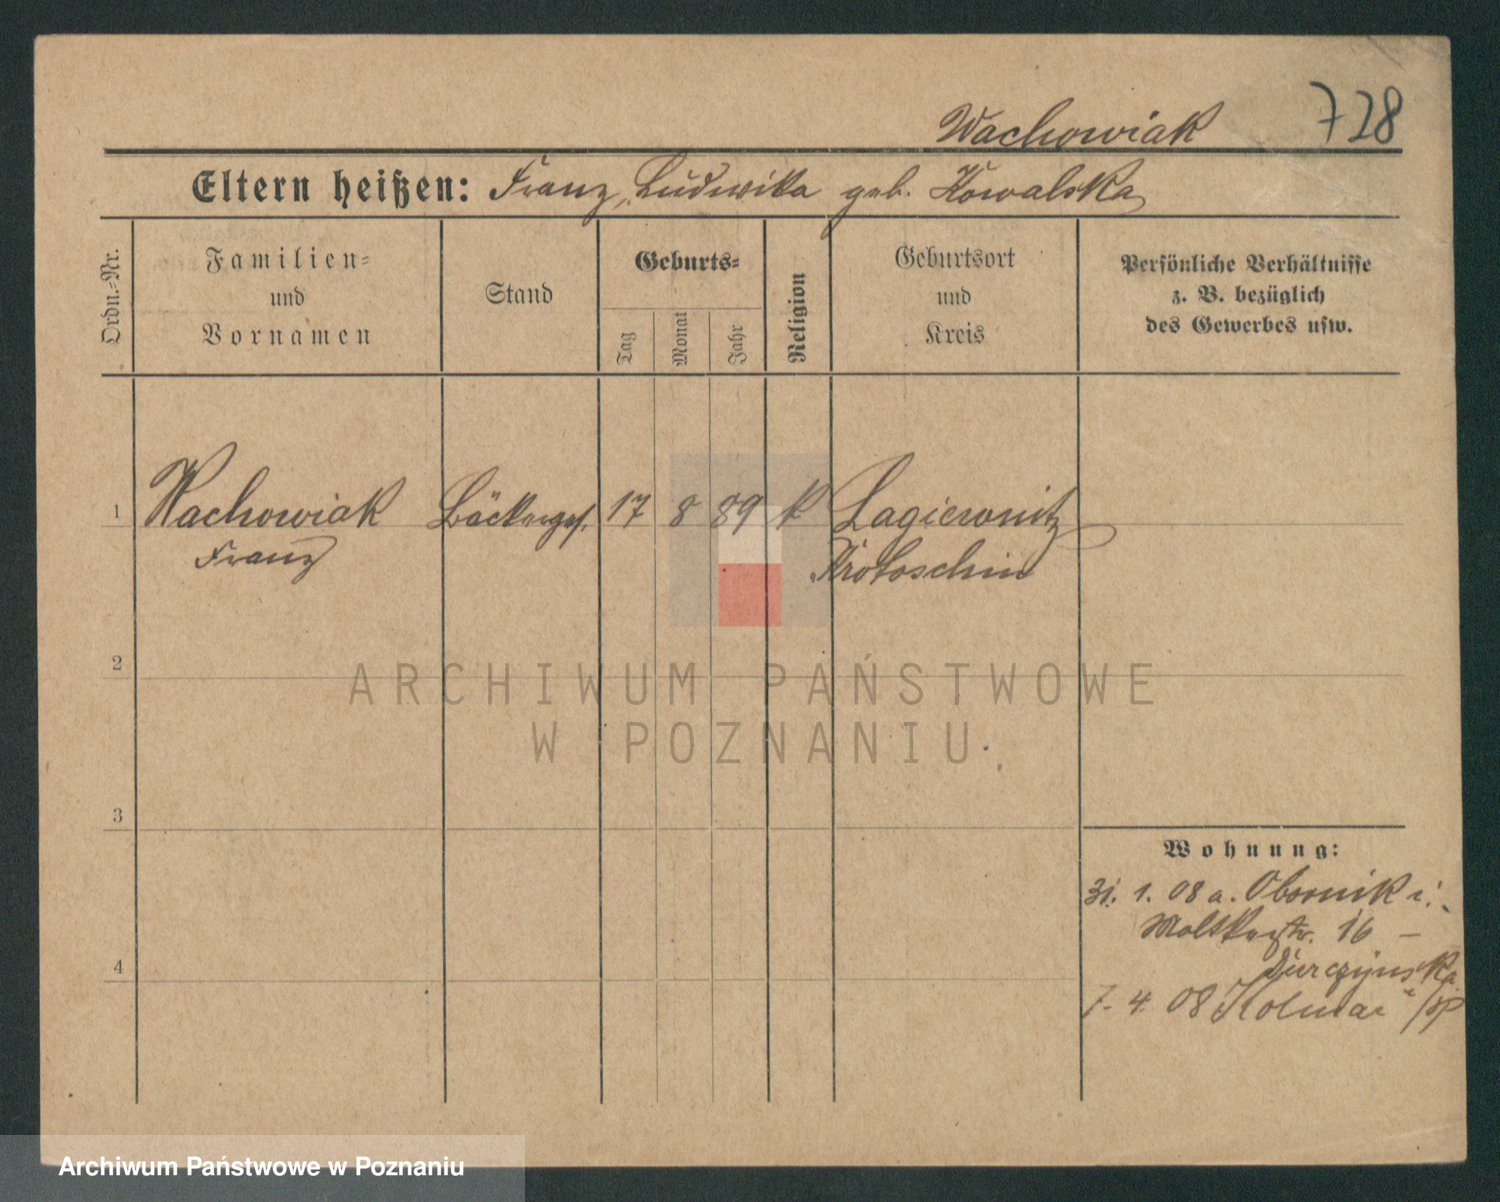 Wachowiak 728
Eltern heißen: Franz, Ludwika geb. Kowalska
Ordn.-Nr.
Familien-
und
Vornamen
Stand
Geburts-
Tag
Monat
Jahr
Religion
Geburtsort
und
Kreis
Persönliche Verhältnisse
z. B. bezüglich
des Gewerbes usw.
1 Wachowiak Bäckerges. 17 8 89 k Lagiewnitz
Franz Krotoschin
2
ARCHIWUM PAŃSTWOWE
W POZNANIU
3
Wohnung:
31. 1. 08 a. Obornik
Moltkestr. 16 –
4
7. 4. 08 Kolmar i/P
Archiwum Państwowe w Poznaniu